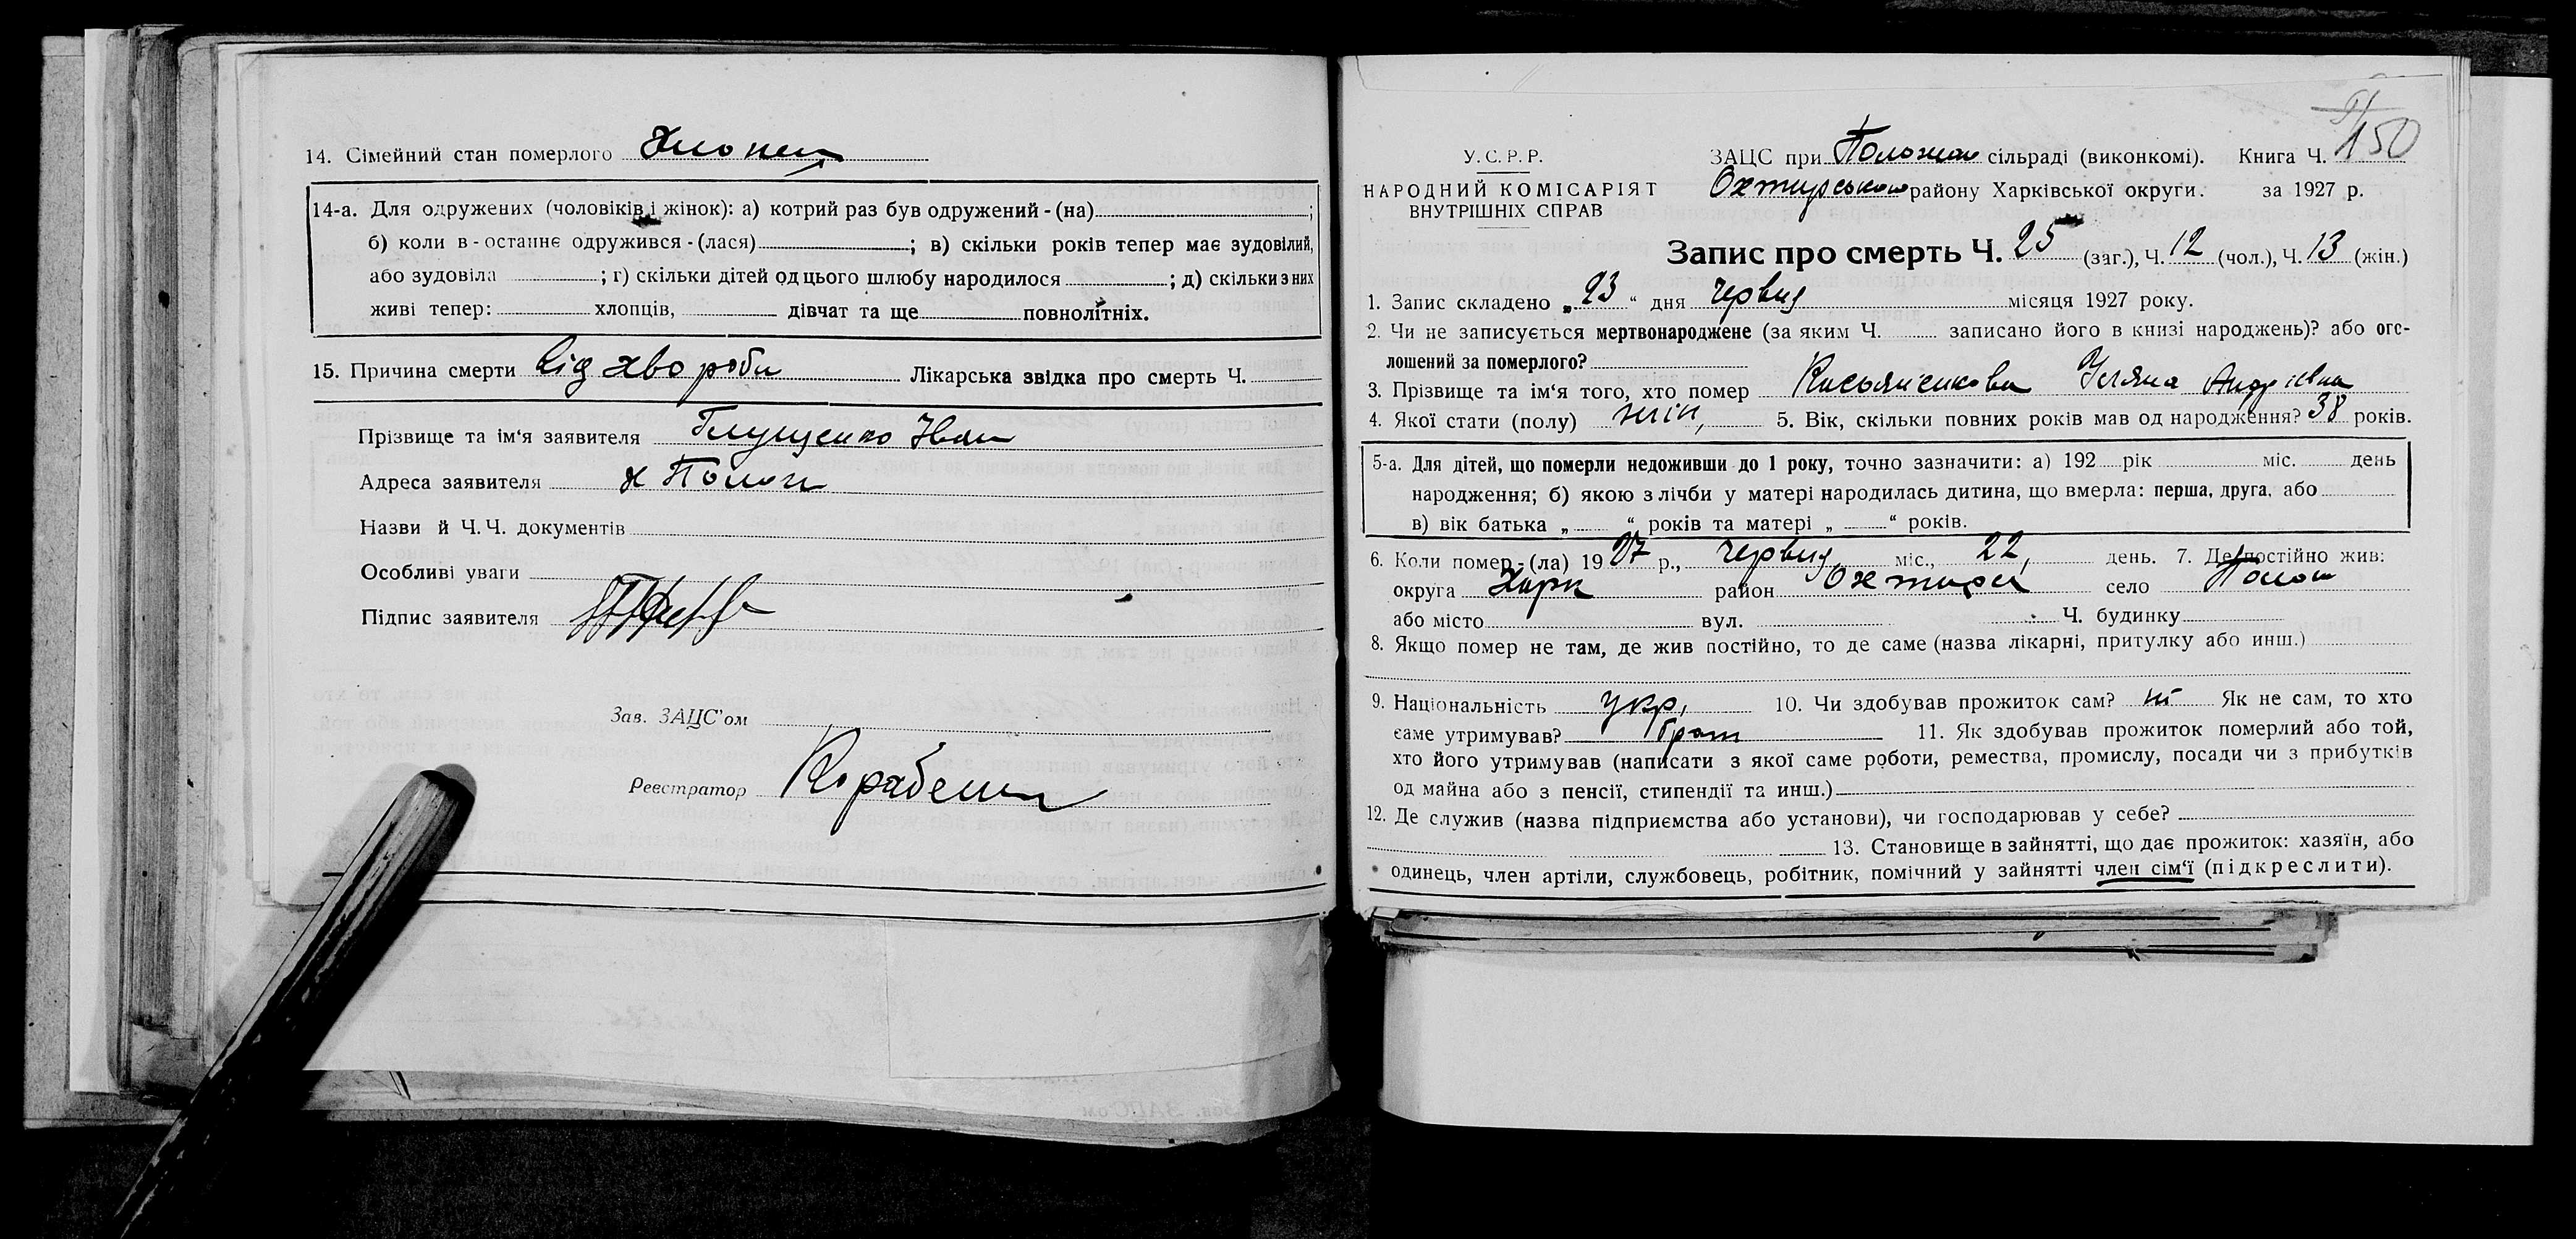 14. Сімейний стан померлого Хлопець
14-а. Для одружених (чоловіків і жінок): а) котрий раз був одружений - (на) ;
б) коли в - останнє одружився - (лася) ; в) скільки років тепер має зудовілий,
або зудовіла ; г) скільки дітей од цього шлюбу народилося ; д) скільки з них
живі тепер: хлопців, дівчат та ще повнолітніх.
15. Причина смерти Від хвороби Лікарська звідка про смерть Ч.
Прізвище та ім'я заявителя Глущенко Іван
Адреса заявителя х Полози
Назви й Ч. Ч. документів
Особливі уваги
Підпис заявителя
Зав. ЗАЦС'ом
Реєстратор
150
У. С. Р. Р.
НАРОДНИЙ КОМІСАРІЯТ
ВНУТРІШНІХ СПРАВ
ЗАЦС при сільраді (виконкомі). Книга Ч.
Охтирського району Харківської округи. за 1927 р.
Запис про смерть Ч. 25 (заг.), Ч. 12 (чол.), Ч. 13 (жін.)
1. Запис складено „ 23 “ дня червня місяця 1927 року.
2. Чи не записується мертвонароджене (за яким Ч. записано його в книзі народжень)? або ого-
лошений за померлого?
3. Прізвище та ім'я того, хто помер Касьяненкова Уляна Андріївна
4. Якої стати (полу) жін, 5. Вік, скільки повних років мав од народження? 38 років.
5-а. Для дітей, що померли недоживши до 1 року, точно зазначити: а) 192 рік міс. день
народження; б) якою з лічби у матері народилась дитина, що вмерла: перша, друга, або
в) вік батька „ “ років та матері „ “ років.
6. Коли помер - (ла) 1927 р., червня, міс., 22, день. 7. Де постійно жив:
округа Харк район Охтирс село
або місто вул. Ч. будинку
8. Якщо помер не там, де жив постійно, то де саме (назва лікарні, притулку або инш.)
9. Національність укр, 10. Чи здобував прожиток сам? ні Як не сам, то хто
саме утримував? брат 11. Як здобував прожиток померлий або той,
хто його утримував (написати з якої саме роботи, ремества, промислу, посади чи з прибутків
од майна або з пенсії, стипендії та инш.)
12. Де служив (назва підприємства або установи), чи господарював у себе?
13. Становище в зайнятті, що дає прожиток: хазяїн, або
одинець, член артіли, службовець, робітник, помічний у зайнятті член сім'ї (підкреслити).